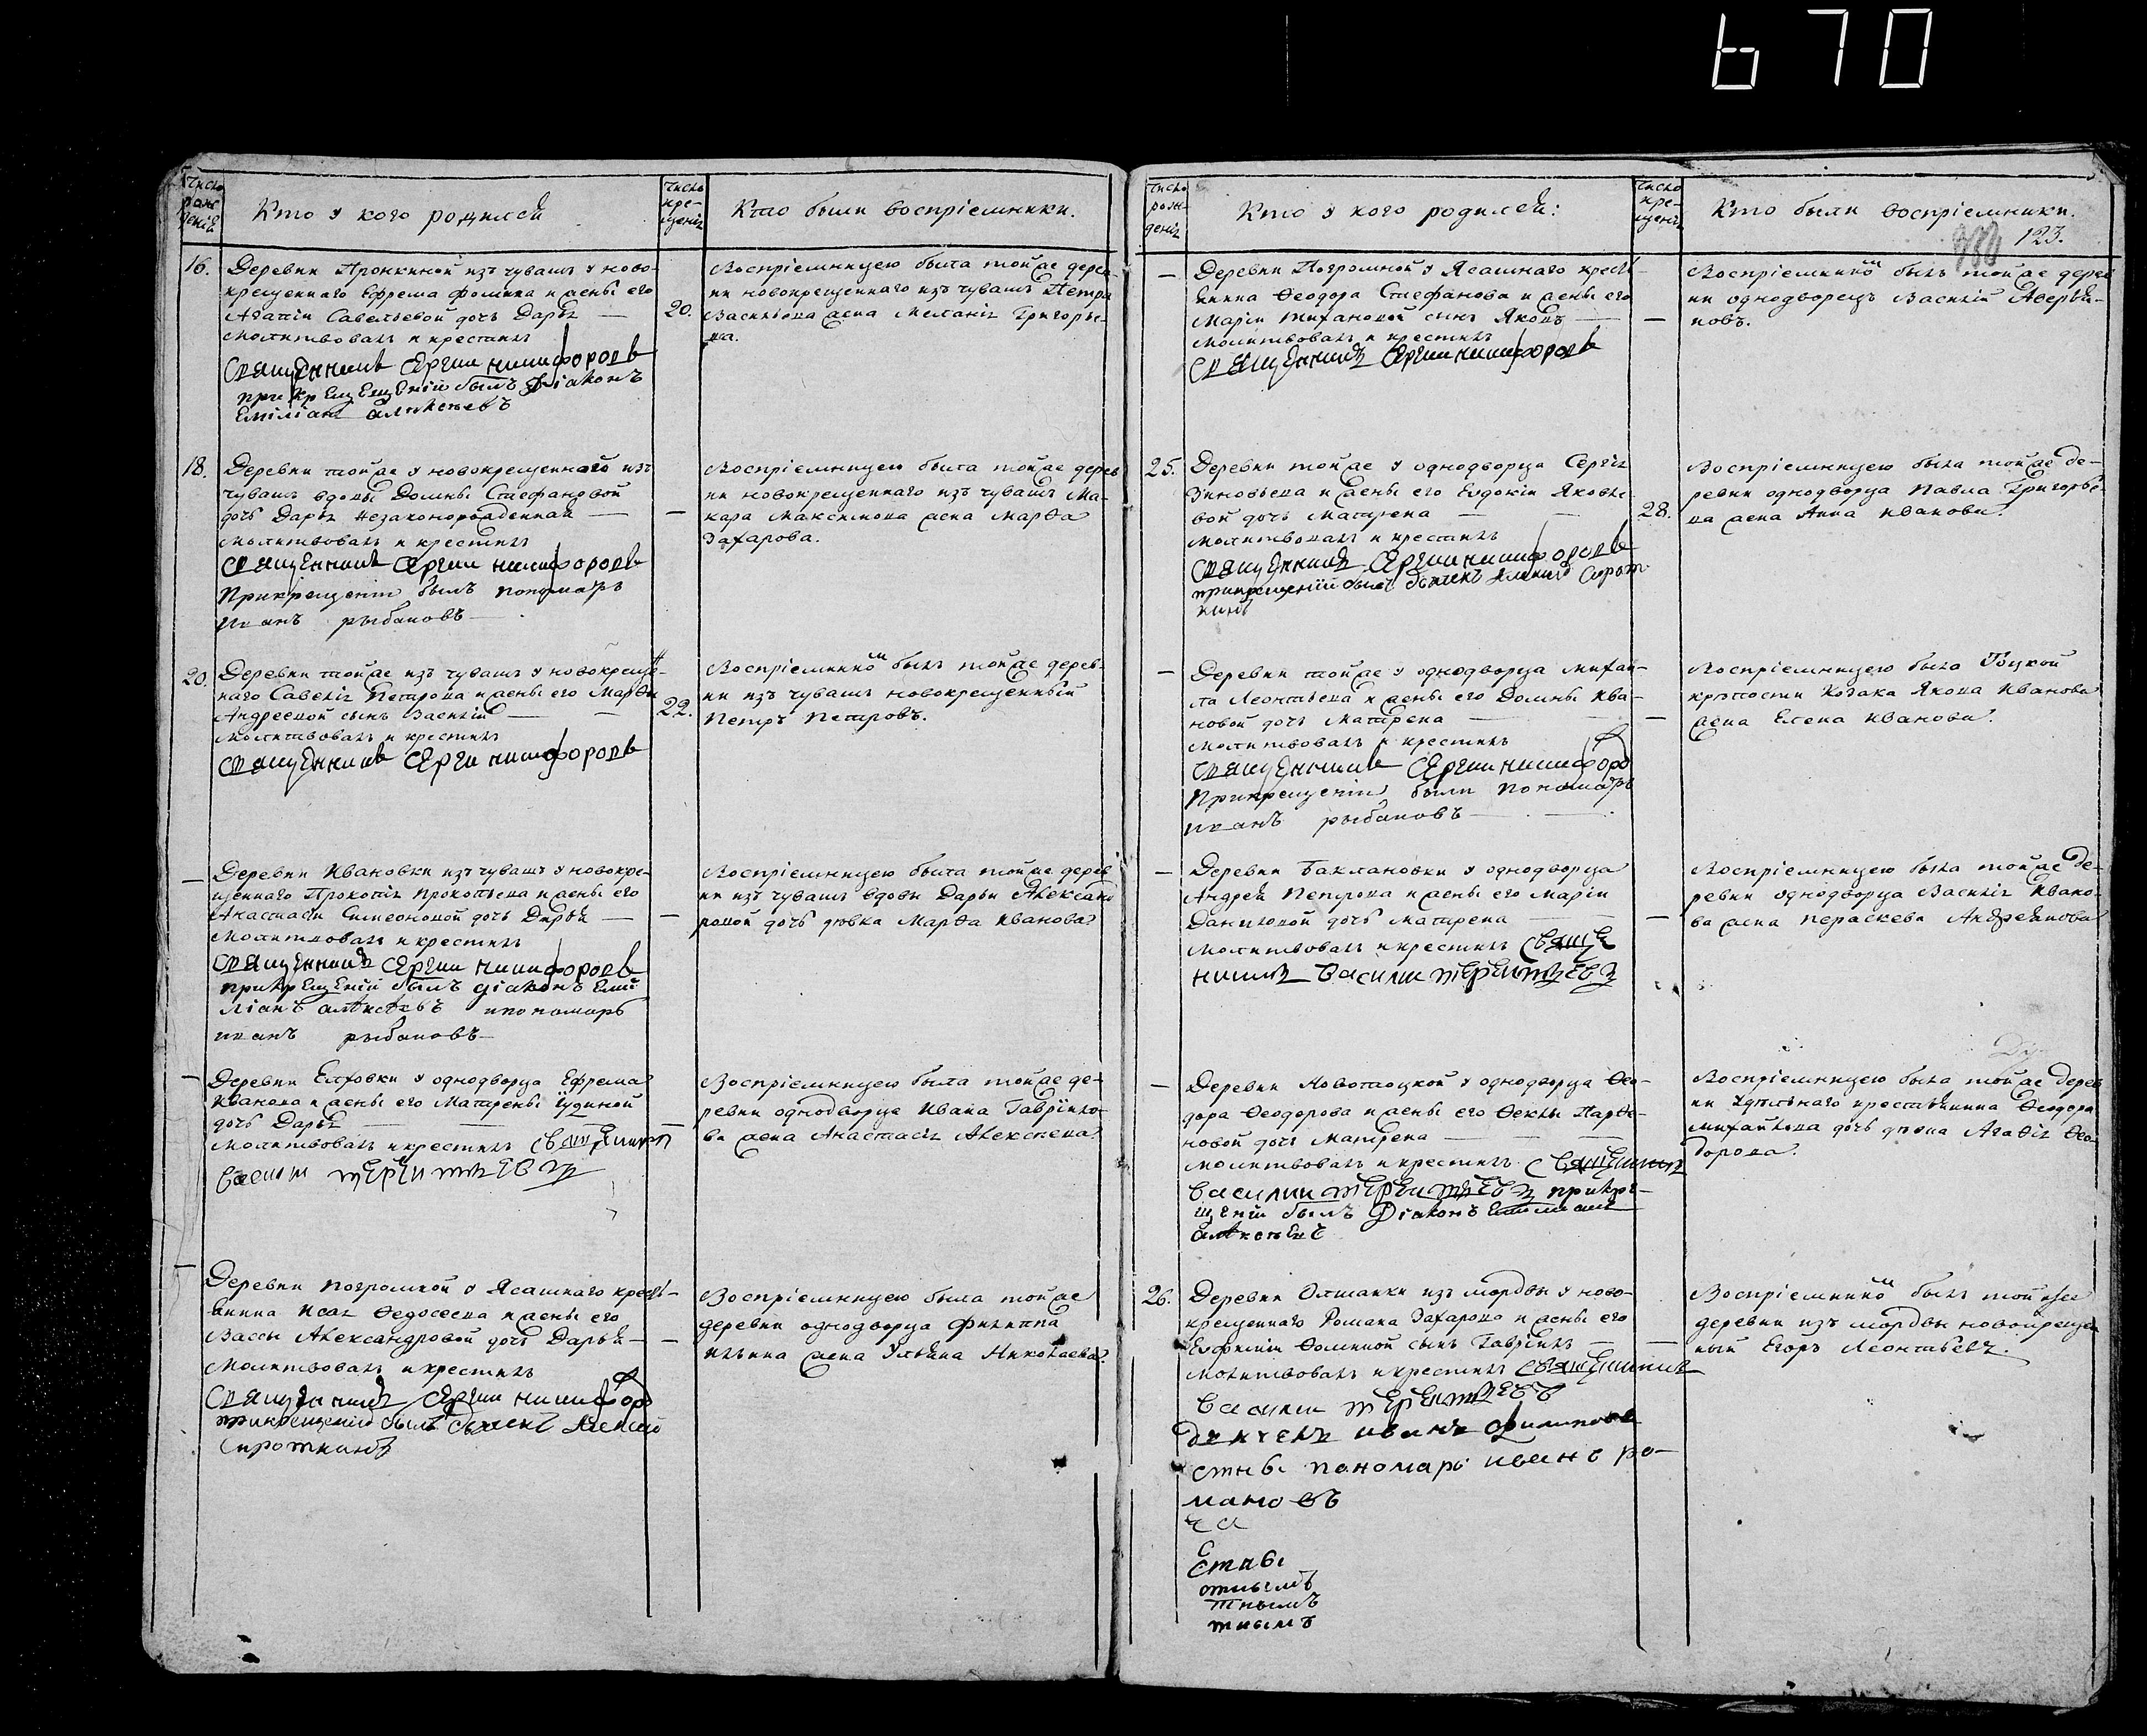 670
Число рожденія
Кто у кого родился
Число крещенія
Кто были воспріемники.
16.
Деревни Пронкиной изъ чувашъ у ново-
крещеннаго Ефрема Фомина и жены его
Агапіи Савельевой дочь Дарья —
молитвовалъ и крестилъ
священникъ Сергии никифоровъ
при крещеніи былъ діаконъ
Емиліанъ алексѣевъ
20.
Воспріемницею была той же дерев-
ни новокрещеннаго изъ чувашъ Петра
Васильева жена Меланія Григорье-
ва.
18.
Деревни той же у новокрещеннаго изъ
чувашъ вдовы Домны Стефановой
дочь Дарья незаконорожденная —
молитвовалъ и крестилъ
священникъ Сергии никифоровъ
Прикрещеніи былъ пономаръ
иванъ рыбаковъ
—
Воспріемницею была той же дерев
ни новокрещеннаго изъ чувашъ Ма-
кара Максимова жена Марѳа
Захарова.
20.
Деревни той же изъ чувашъ у новокреще-
наго Савелія Петрова и жены его Марѳы
Андреевой сынъ Василій —
молитвовалъ и крестилъ
священникъ Серги никифоровъ
22.
Воспріемникомъ былъ той же дерев-
ни изъ чувашъ новокрещенный
Петръ Петровъ.
—
Деревни Ивановки изъ чувашъ у новокре-
щеннаго Прокопія Прокопьева и жены его
Анастасіи Симеоновой дочь Дарья —
молитвовалъ и крестилъ
священникъ Сергии никифоровъ
прикрещеніи былъ діаконъ Еми
ліанъ алексѣевъ и пономарь
иванъ рыбаковъ
—
Воспріемницею была той же дерев
ни изъ чувашъ вдовы Дарьи Александ
ровой дочь дѣвка Марѳа Иванова
—
Деревни Елховки у однодворца Ефрема
Иванова и жены его Матрены Юдиной
дочь Дарья
молитвовалъ и крестилъ священникъ
васили терентьевъ
—
Воспріемницею была той же де-
ревни однодворца Ивана Гаврило-
ва жена Анастасія Алексеева
—
Деревни Погромной у Ясашнаго кресть-
янина Исая Ѳедосеева и жены его
Вассы Александровой дочь Дарья —
молитвовалъ и крестилъ
священникъ Сергии никифоров
прикрещеніи былъ дьячекъ Алексей
Сироткинъ
—
Воспріемницею была той же
деревни однодворца Филиппа
Ильина жена Ульяна Николаева
Число рожденія
Кто у кого родился:
Число крещенія
Кто были воспріемники.
123.
—
Деревни Погромной у Ясашнаго кресть-
янина Ѳеодора Стефанова и жены его
Маріи Тихановой сынъ Яковъ —
молитвовалъ и крестилъ
священникъ Сергии никифоровъ
—
Воспріемникомъ былъ той же дерев
ни однодворецъ Василій Аверья-
новъ.
25.
Деревни той же у однодворца Сергія
Зиновьева и жены его Евдокіи Яковле
вой дочь Матрена —
молитвовалъ и крестилъ
священникъ Сергии никифоровъ
прикрещеніи былъ дьячекъ Алексей Сирот
кинъ
28.
Воспріемницею была той же де-
ревни однодворца Павла Григорье-
ва жена Анна Иванова.
—
Деревни той же у однодворца Михай-
ла Леонтьева и жены его Домны Ива-
новой дочь Матрена —
молитвовалъ и крестилъ
священникъ Сергии никифоров
Прикрещеніи были Пономаръ
иванъ рыбаковъ
—
Воспріемницею была Тоцкой
крѣпости Козака Якова Иванова
жена Елена Иванова.
—
Деревни Баклановки у однодворца
Андрея Петрова и жены его Маріи
Даниловой дочь Матрена
молитвовалъ и крестилъ свяще
никъ Васили терентьевъ
—
Воспріемницею была той же де-
ревни однодворца Василія Ивано-
ва жена Пераскева Андреянова
—
Деревни Новотоцкой у однодворца Ѳео-
дора Ѳеодорова и жены его Ѳеклы Парѳе-
новой дочь Матрена
молитвовалъ и крестилъ священникъ
василии терентьевъ прикре-
щеніи былъ Діаконъ Емилианъ
алексѣевъ
Воспріемницею была той же дерев
ни Удѣльнаго крестьянина Ѳеодора
Михайлова дочь дѣвка Агаѳія Ѳео
дорова.
26.
Деревни Олшанки изъ мордвы у ново-
крещеннаго Романа Захарова и жены его
Евфиміи Ѳоминой сынъ Гавріилъ —
молитвовалъ и крестилъ священникъ
Васили терентьевъ
дьячекъ иванъ филипов
пономаръ иванъ ро-
мановъ
—
Воспріемникомъ былъ той же
деревни изъ мордвы новокрещен
ный Егоръ Леонтьевъ.